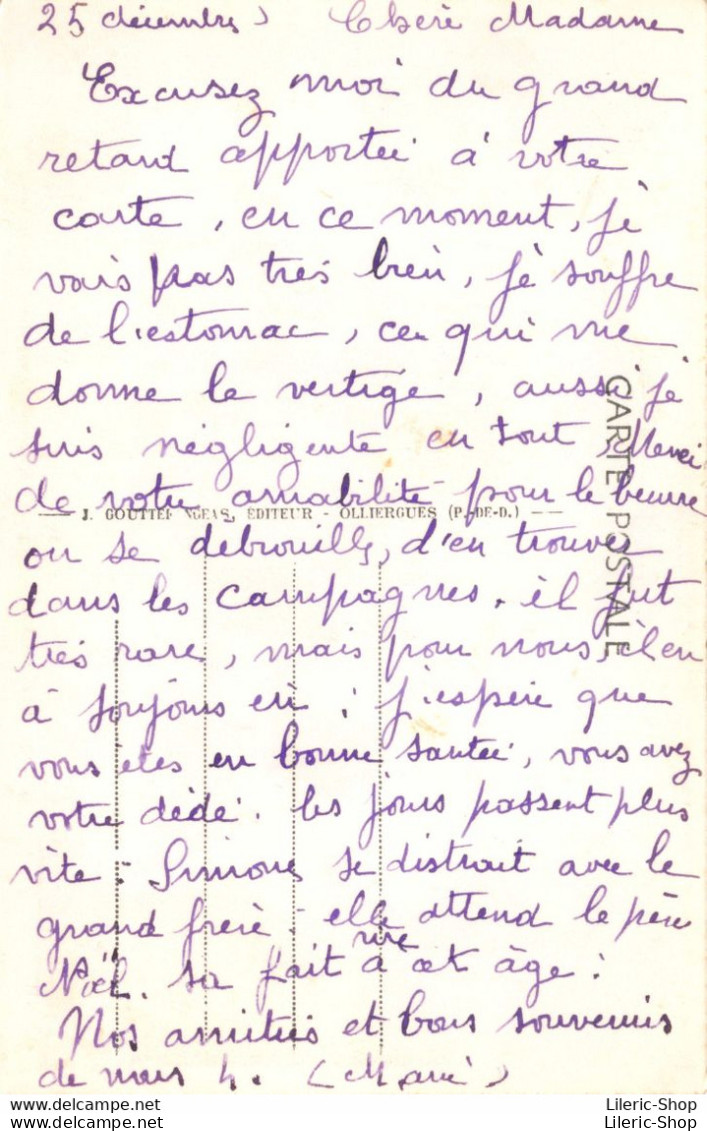 25 décembre Chère Madame
Excusez moi du grand
retard apportée à votre
carte, en ce moment, je
vais pas très bien, je souffre
de l'estomac, ce qui me
donne le vertige, aussi je
suis négligente en tout. Merci
de votre amabilité pour le beurre
J. GOUTTEF NGEAS, EDITEUR - OLLIERGUES (P.-DE-D.)
on se debrouille, d'en trouver
dans les campagnes. il fut
très rare, mais pour nous, il en
à toujours eu; j'espère que
vous êtes en bonne santée, vous avez
votre dédé. les jours passent plus
vite. Simone se distrait avec le
grand frère. elle attend le père
Noël. sa fait rire à cet âge:
Nos amitiés et bons souvenirs
de nous 4. (Marie)
CARTE POSTALE
Lileric-Shop
Lileric-Shop
Lileric-Shop
Lileric-Shop